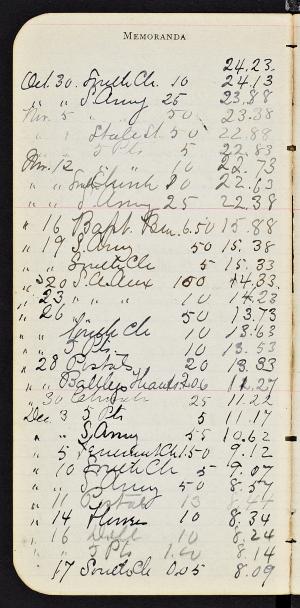 MEMORANDA
24.23
Oct. 30. South Ch. 10 24.13
" " S. Army 25 23.88
Nov. 5 " " 50 23.38
" " State St. 50 22.88
" " 5 Pts 5 22.83
Nov. 12 " " 10 22.73
" " South Church 10 22.63
" " S. Army 25 22.38
" 16 Bapt. 6.50 15.88
" 19 S. Army 50 15.38
" " South Ch 5 15.33
" 20 S. A. Aux 100 14.33
" 23 " " " 10 14.23
" 26 " 50 13.73
" South Ch 10 13.63
" 5 Pts 10 13.53
" 28 Postals 20 13.33
" " 2.06 11.27
" 30 Church 25 11.22
Dec 3 5 Pts 5 11.17
" " S. Army 55 10.62
" 5 Tenement Ch. 1.50 9.12
" 10 South Ch 5 9.07
" " S. Army 50 8.57
" 11 Postals 13 8.44
" 14 10 8.34
" 16 10 8.24
" " 5 Pts 8.14
" 17 South Ch 0.05 8.09